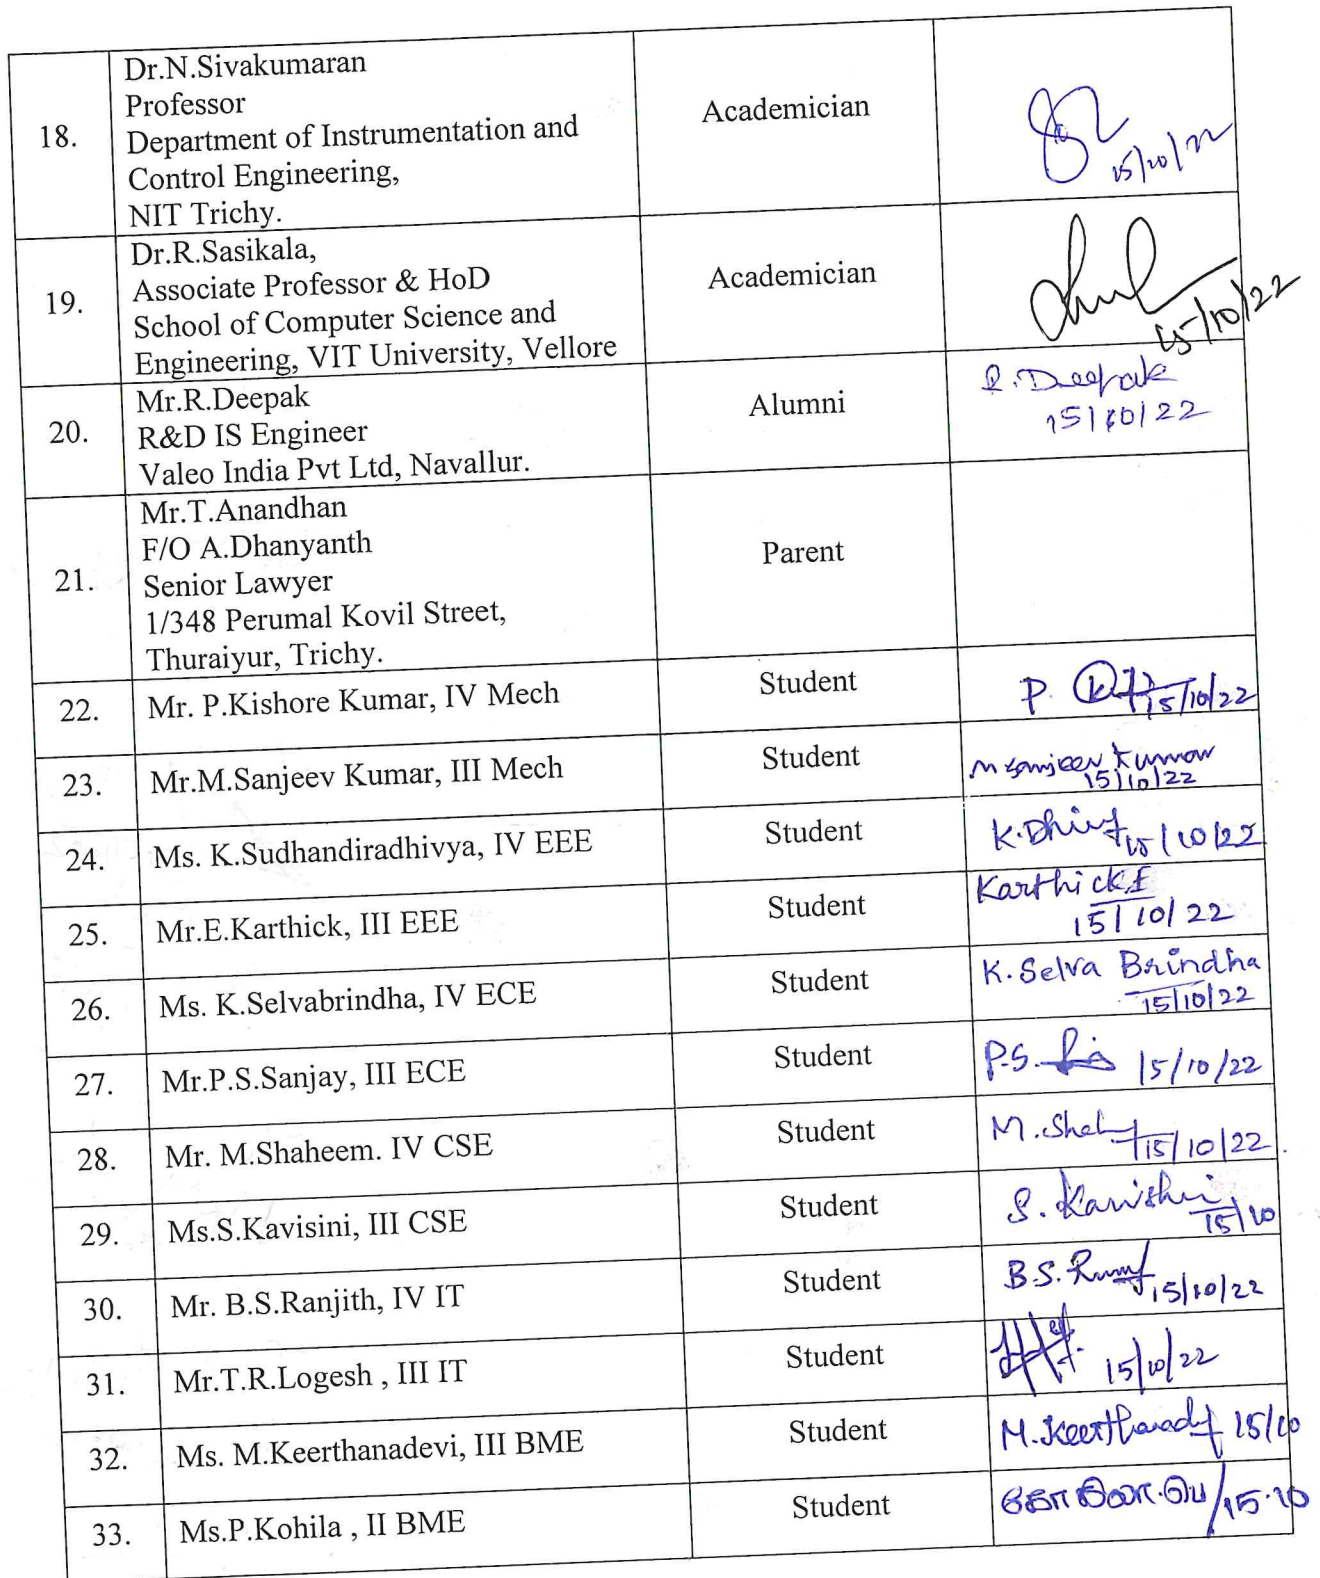 18.
Dr.N.Sivakumaran
Professor
Department of Instrumentation and
Control Engineering,
NIT Trichy.
Academician
15/10/22
19.
Dr.R.Sasikala,
Associate Professor & HoD
School of Computer Science and
Engineering, VIT University, Vellore
Academician
15/10/22
20.
Mr.R.Deepak
R&D IS Engineer
Valeo India Pvt Ltd, Navallur.
Alumni
R.Deepak
15/10/22
21.
Mr.T.Anandhan
F/O A.Dhanyanth
Senior Lawyer
1/348 Perumal Kovil Street,
Thuraiyur, Trichy.
Parent
22.
Mr. P.Kishore Kumar, IV Mech
Student
P. 15/10/22
23.
Mr.M.Sanjeev Kumar, III Mech
Student
M Sanjeev Kumar
15/10/22
24.
Ms. K.Sudhandiradhivya, IV EEE
Student
15/10/22
25.
Mr.E.Karthick, III EEE
Student
Karthick.E
15/10/22
26.
Ms. K.Selvabrindha, IV ECE
Student
K. Selva Brindha
15/10/22
27.
Mr.P.S.Sanjay, III ECE
Student
P.S. 15/10/22
28.
Mr. M.Shaheem. IV CSE
Student
15/10/22
29.
Ms.S.Kavisini, III CSE
Student
15/10
30.
Mr. B.S.Ranjith, IV IT
Student
B.S. 15/10/22
31.
Mr.T.R.Logesh , III IT
Student
15/10/22
32.
Ms. M.Keerthanadevi, III BME
Student
15/10
33.
Ms.P.Kohila , II BME
Student
15.10